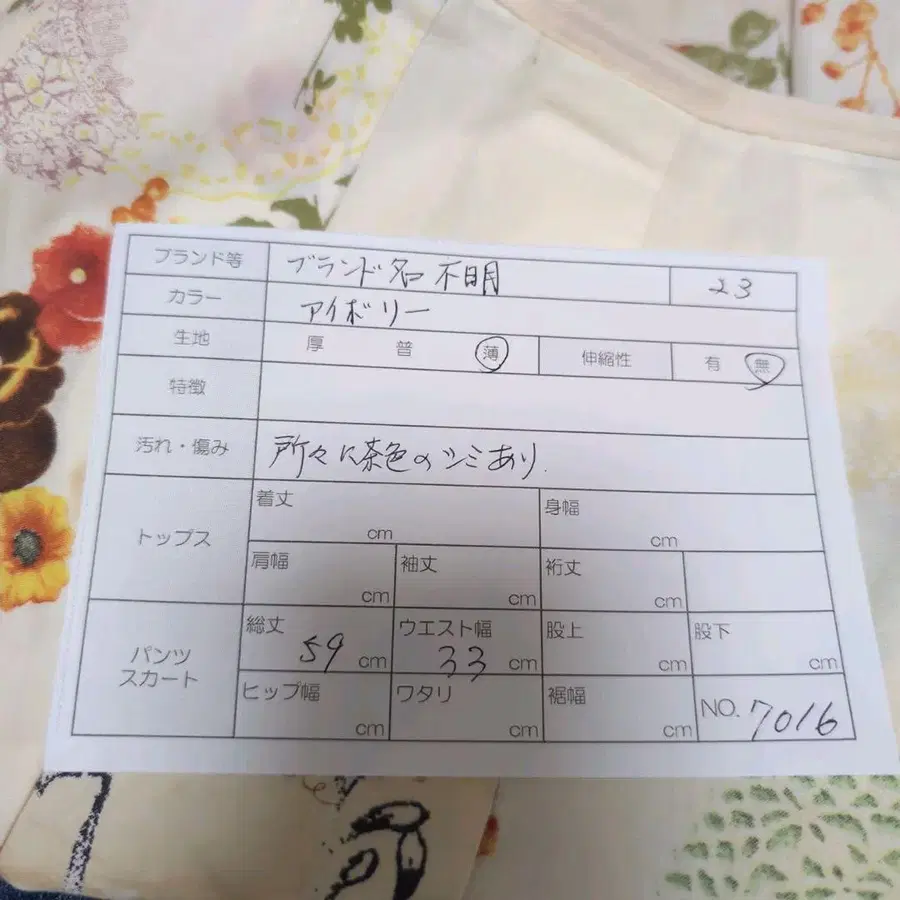 ブランド等 ブランド名 不明 23
カラー アイボリー
生地 厚 普 薄 伸縮性 有 無
特徴
汚れ・傷み 所々に茶色のシミあり.
トップス
着丈 cm 身幅 cm
肩幅 cm 袖丈 cm 裄丈 cm
パンツ
スカート
総丈 59 cm ウエスト幅 33 cm 股上 cm 股下 cm
ヒップ幅 cm ワタリ cm 裾幅 cm NO. 7016